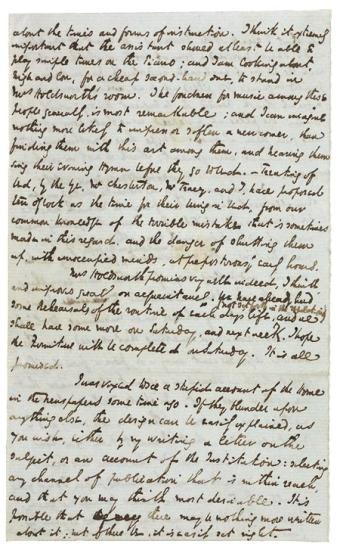 about the times and forms of instruction. I think it extremely
important that the assistant should at least be able to
play simple tunes on the Piano; and I am looking about,
high and low, for a cheap second-hand one, to stand in
Mrs Holdsworth's room. The fondness for music among these
people generally, is most remarkable; and I can imagine
nothing more likely to impress or soften a new comer, than
finding them with this art among them, and hearing them
sing their Evening Hymn before they go to bed. — Treating of
bed, by the bye, Mr Chesterton, Mr Tracey, and I, have proposed
ten o'Clock as the time for their being in bed, from our
common knowledge of the terrible mistakes that is sometimes
made in this regard, and the danger of shutting them
up, with unoccupied minds, at preposterous early hours.
Mrs Holdsworth promises very well indeed, I think
and improves greatly on acquaintance. We have already had
some Rehearsals of the routine of each day's life, and we
shall have some more on Saturday, and next week. I hope
the Furniture will be complete on Saturday. It is all
promised.
I was vexed to see a stupid account of the Home
in the newspapers some time ago. If they blunder upon
anything else, the design can be easily explained, as
you wish, either by my writing a letter on the
subject, or an account of the Institution: selecting
any channel of publication that is within reach,
and that you may think most desirable. It is
possible that there may be nothing more written
about it; but if there be, it is easily set right.